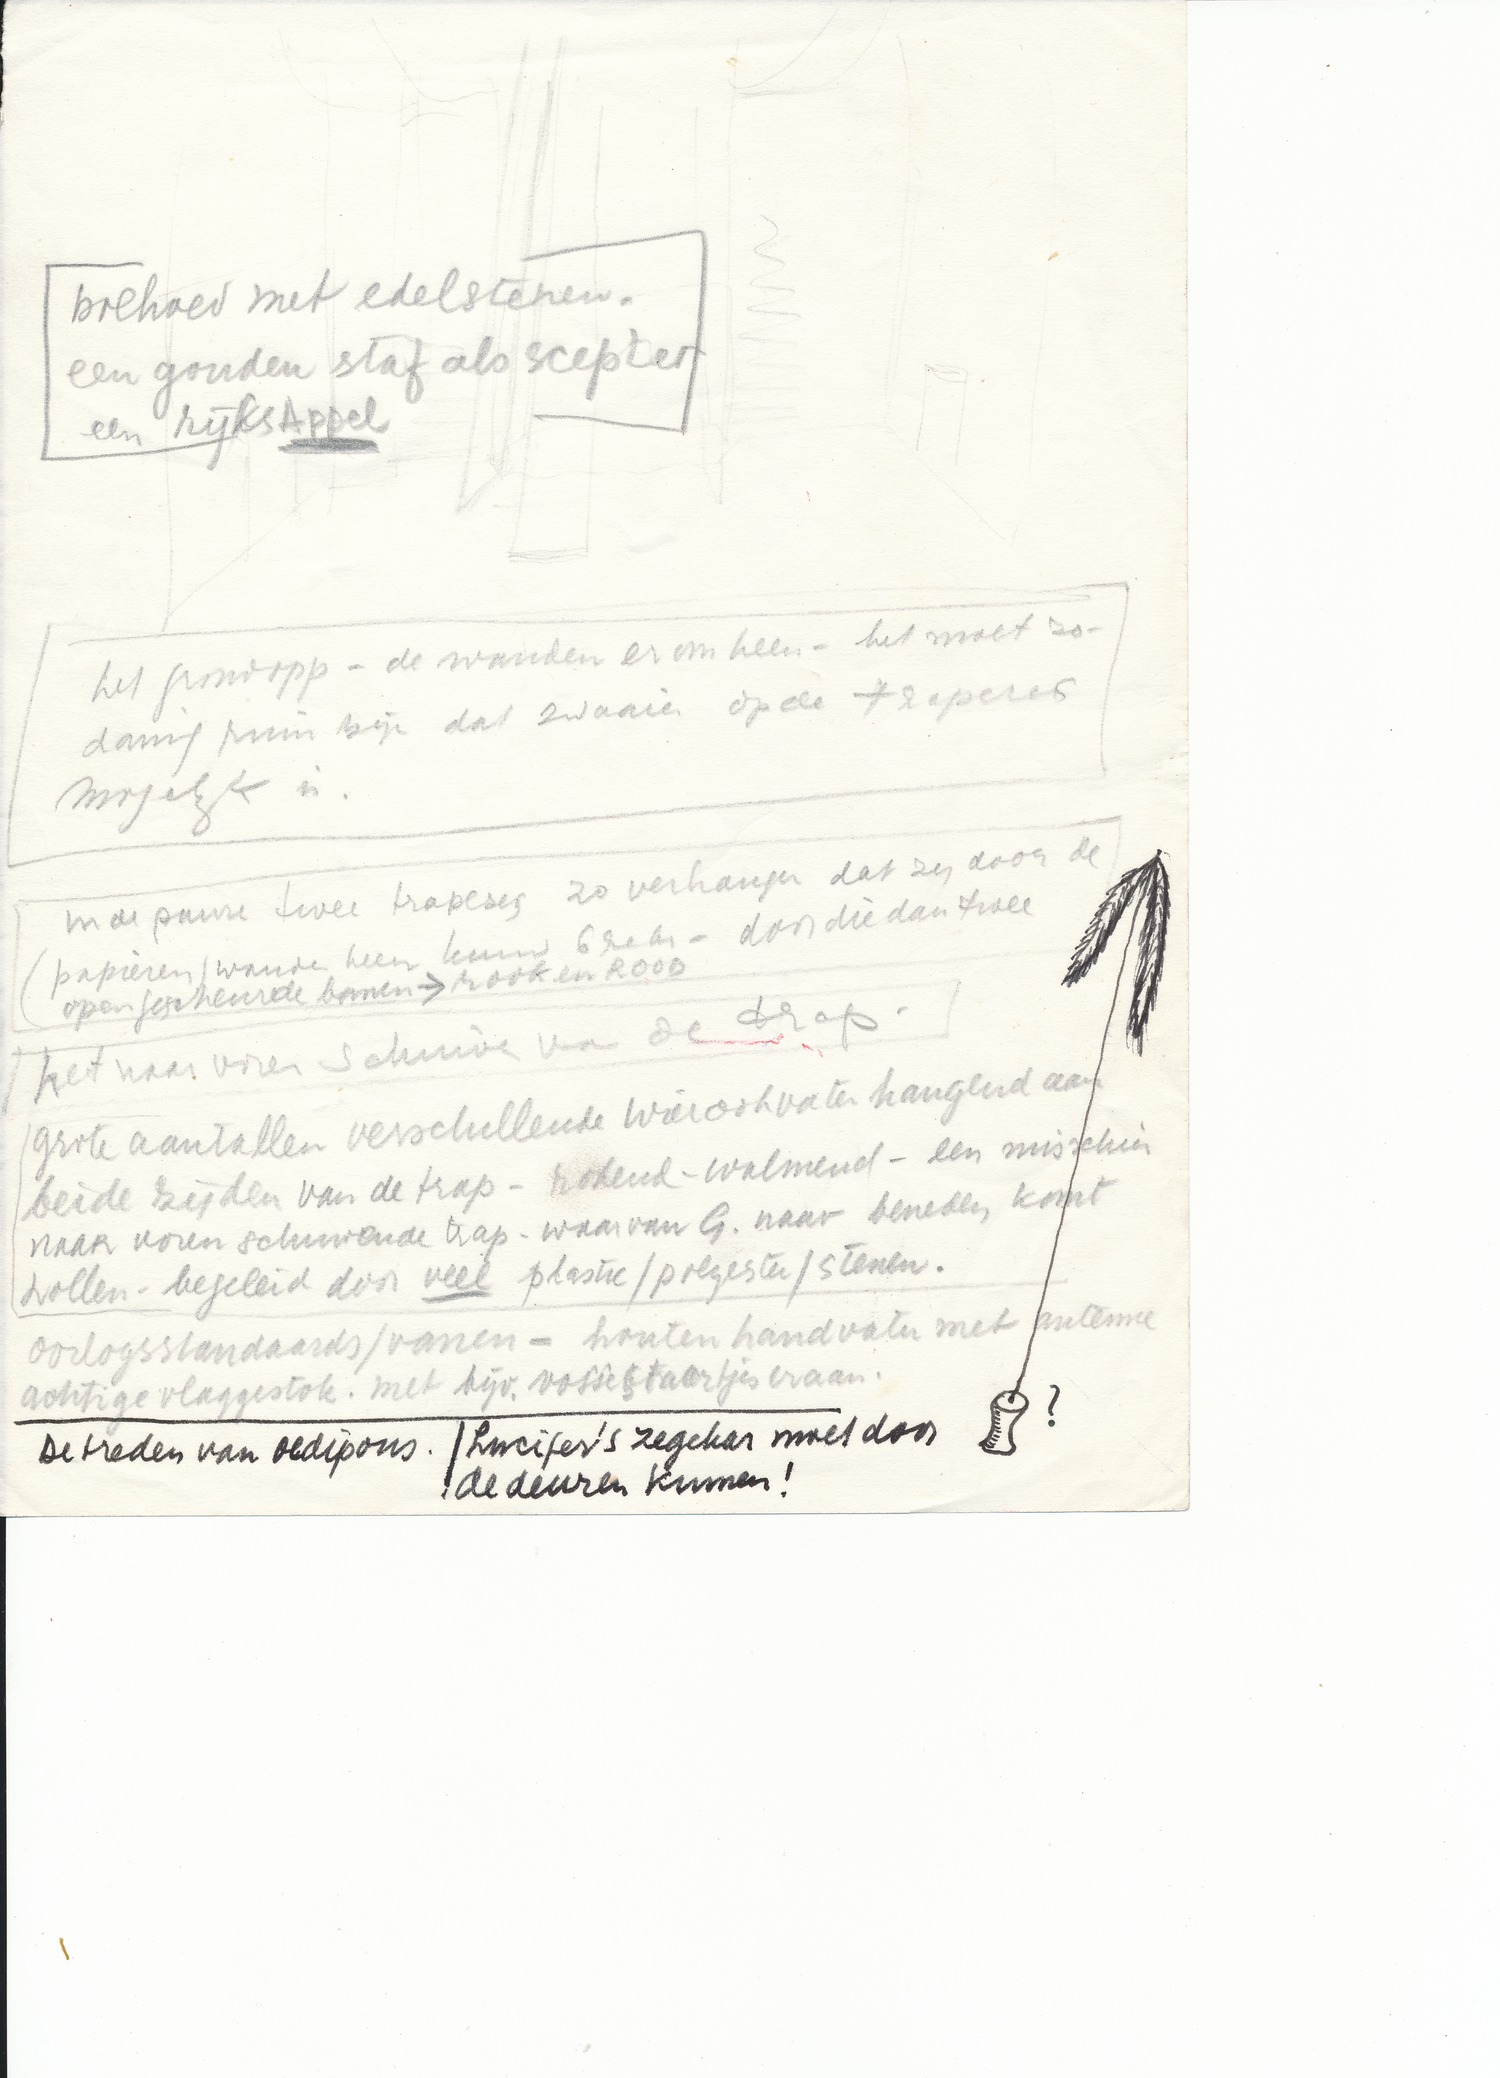 bolhoed met edelstenen.
een gouden staf als scepter
een rijksAppel
het grondopp - de wanden er om heen - het moet zo-
danig ruim zijn dat zwaaien op de trapezes
mogelijk is.
in de pauze twee trapezes zo verhangen dat zij door de
papieren/wanden heen kunn breken - door die dan twee
opengescheurde banen → rook en ROOD
het naar voren schuiven van de trap.
grote aantallen verschillende wierookvaten hangend aan
beide zijden van de trap - rokend - walmend - een misschien
naar voren schuivende trap - waarvan G. naar beneden komt
rollen - begeleid door veel plastic/polyester/stenen.
oorlogsstandaards/vanen - houten handvaten met antenne
achtige vlaggestok. met bijv. vossestaartjes eraan.
?
De treden van oedipous. / Lucifer's zegekar moet door
! de deuren kunnen!